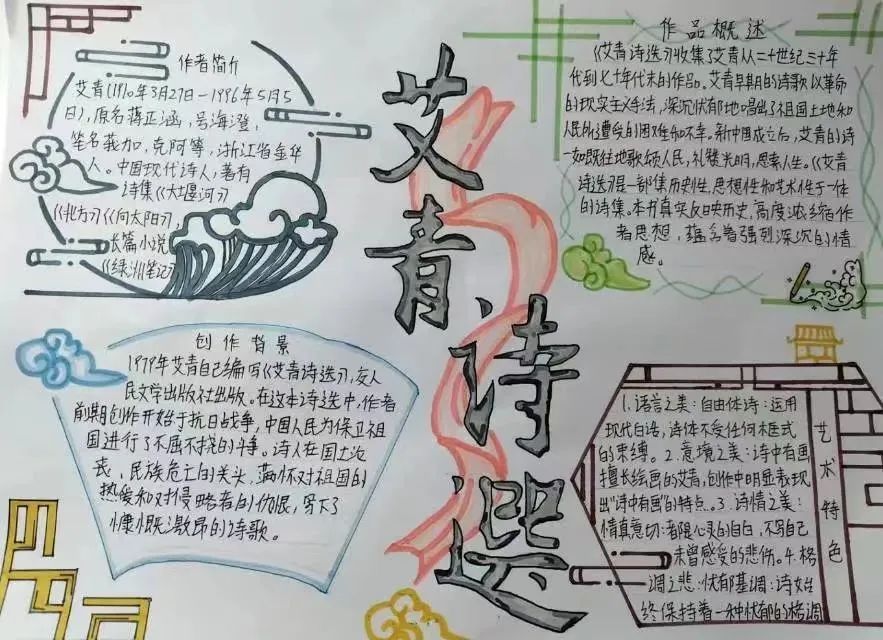 艾青诗选
作者简介
艾青(1910年3月27日－1996年5月5
日),原名蒋正涵,号海澄,
笔名莪加,克阿等,浙江省金华
人。中国现代诗人,著有
诗集《大堰河》
《北方》《向太阳》,
长篇小说
《绿洲笔记》
作品概述
《艾青诗选》收集了艾青从二十世纪三十年
代到七十年代末的作品。艾青早期的诗歌以革命
的现实主义手法,深沉忧郁地唱出了祖国土地和
人民所遭受的困难和不幸。新中国成立后,艾青的诗
一如既往地歌颂人民,礼赞光明,思索人生。《艾青
诗选》是一部集历史性,思想性和艺术性于一体
的诗集。本书真实反映历史,高度浓缩作
者思想,蕴含着强烈深沉的情
感。
创作背景
1979年艾青自己编写《艾青诗选》,友人
民文学出版社出版。在这本诗选中,作者
前期创作开始于抗日战争,中国人民为保卫祖
国进行了不屈不挠的斗争。诗人在国土沦
丧,民族危亡的关头,满怀对祖国的
热爱和对侵略者的仇恨,写下了
慷慨激昂的诗歌。
艺术特色
1.语言之美:自由体诗:运用
现代白话,诗体不受任何框式
的束缚。2.意境之美:诗中有画
擅长绘画的艾青,创作中明显表现
出"诗中有画"的特点。3.诗情之美:
情真意切:都是心灵的自白,不写自己
未曾感受的悲伤。4.格
调之悲:忧郁基调:诗始
终保持着一种忧郁的格调